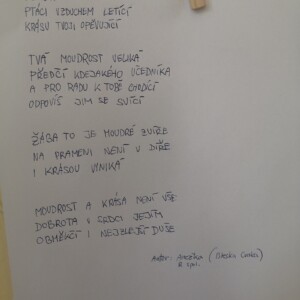 PTÁCI VZDUCHEM LETÍCÍ
KRÁSU TVOJI OPĚVUJÍCÍ
TVÁ MOUDROST VELIKÁ
PŘEDČÍ KDEJAKÉHO UČEDNÍKA
A PRO RADU K TOBĚ CHODÍCÍ
ODPOVÍŠ JIM SE SVÍCÍ
ŽÁBA TO JE MOUDRÉ ZVÍŘE
NA PRAMENI NENÍ V DÍŘE
I KRÁSOU VYNIKÁ
MOUDROST A KRÁSA NENÍ VŠE
DOBROTA V SRDCI JEJÍM
OBMĚKČÍ I NEJZLEJŠÍ DUŠE
Autor: Anežka